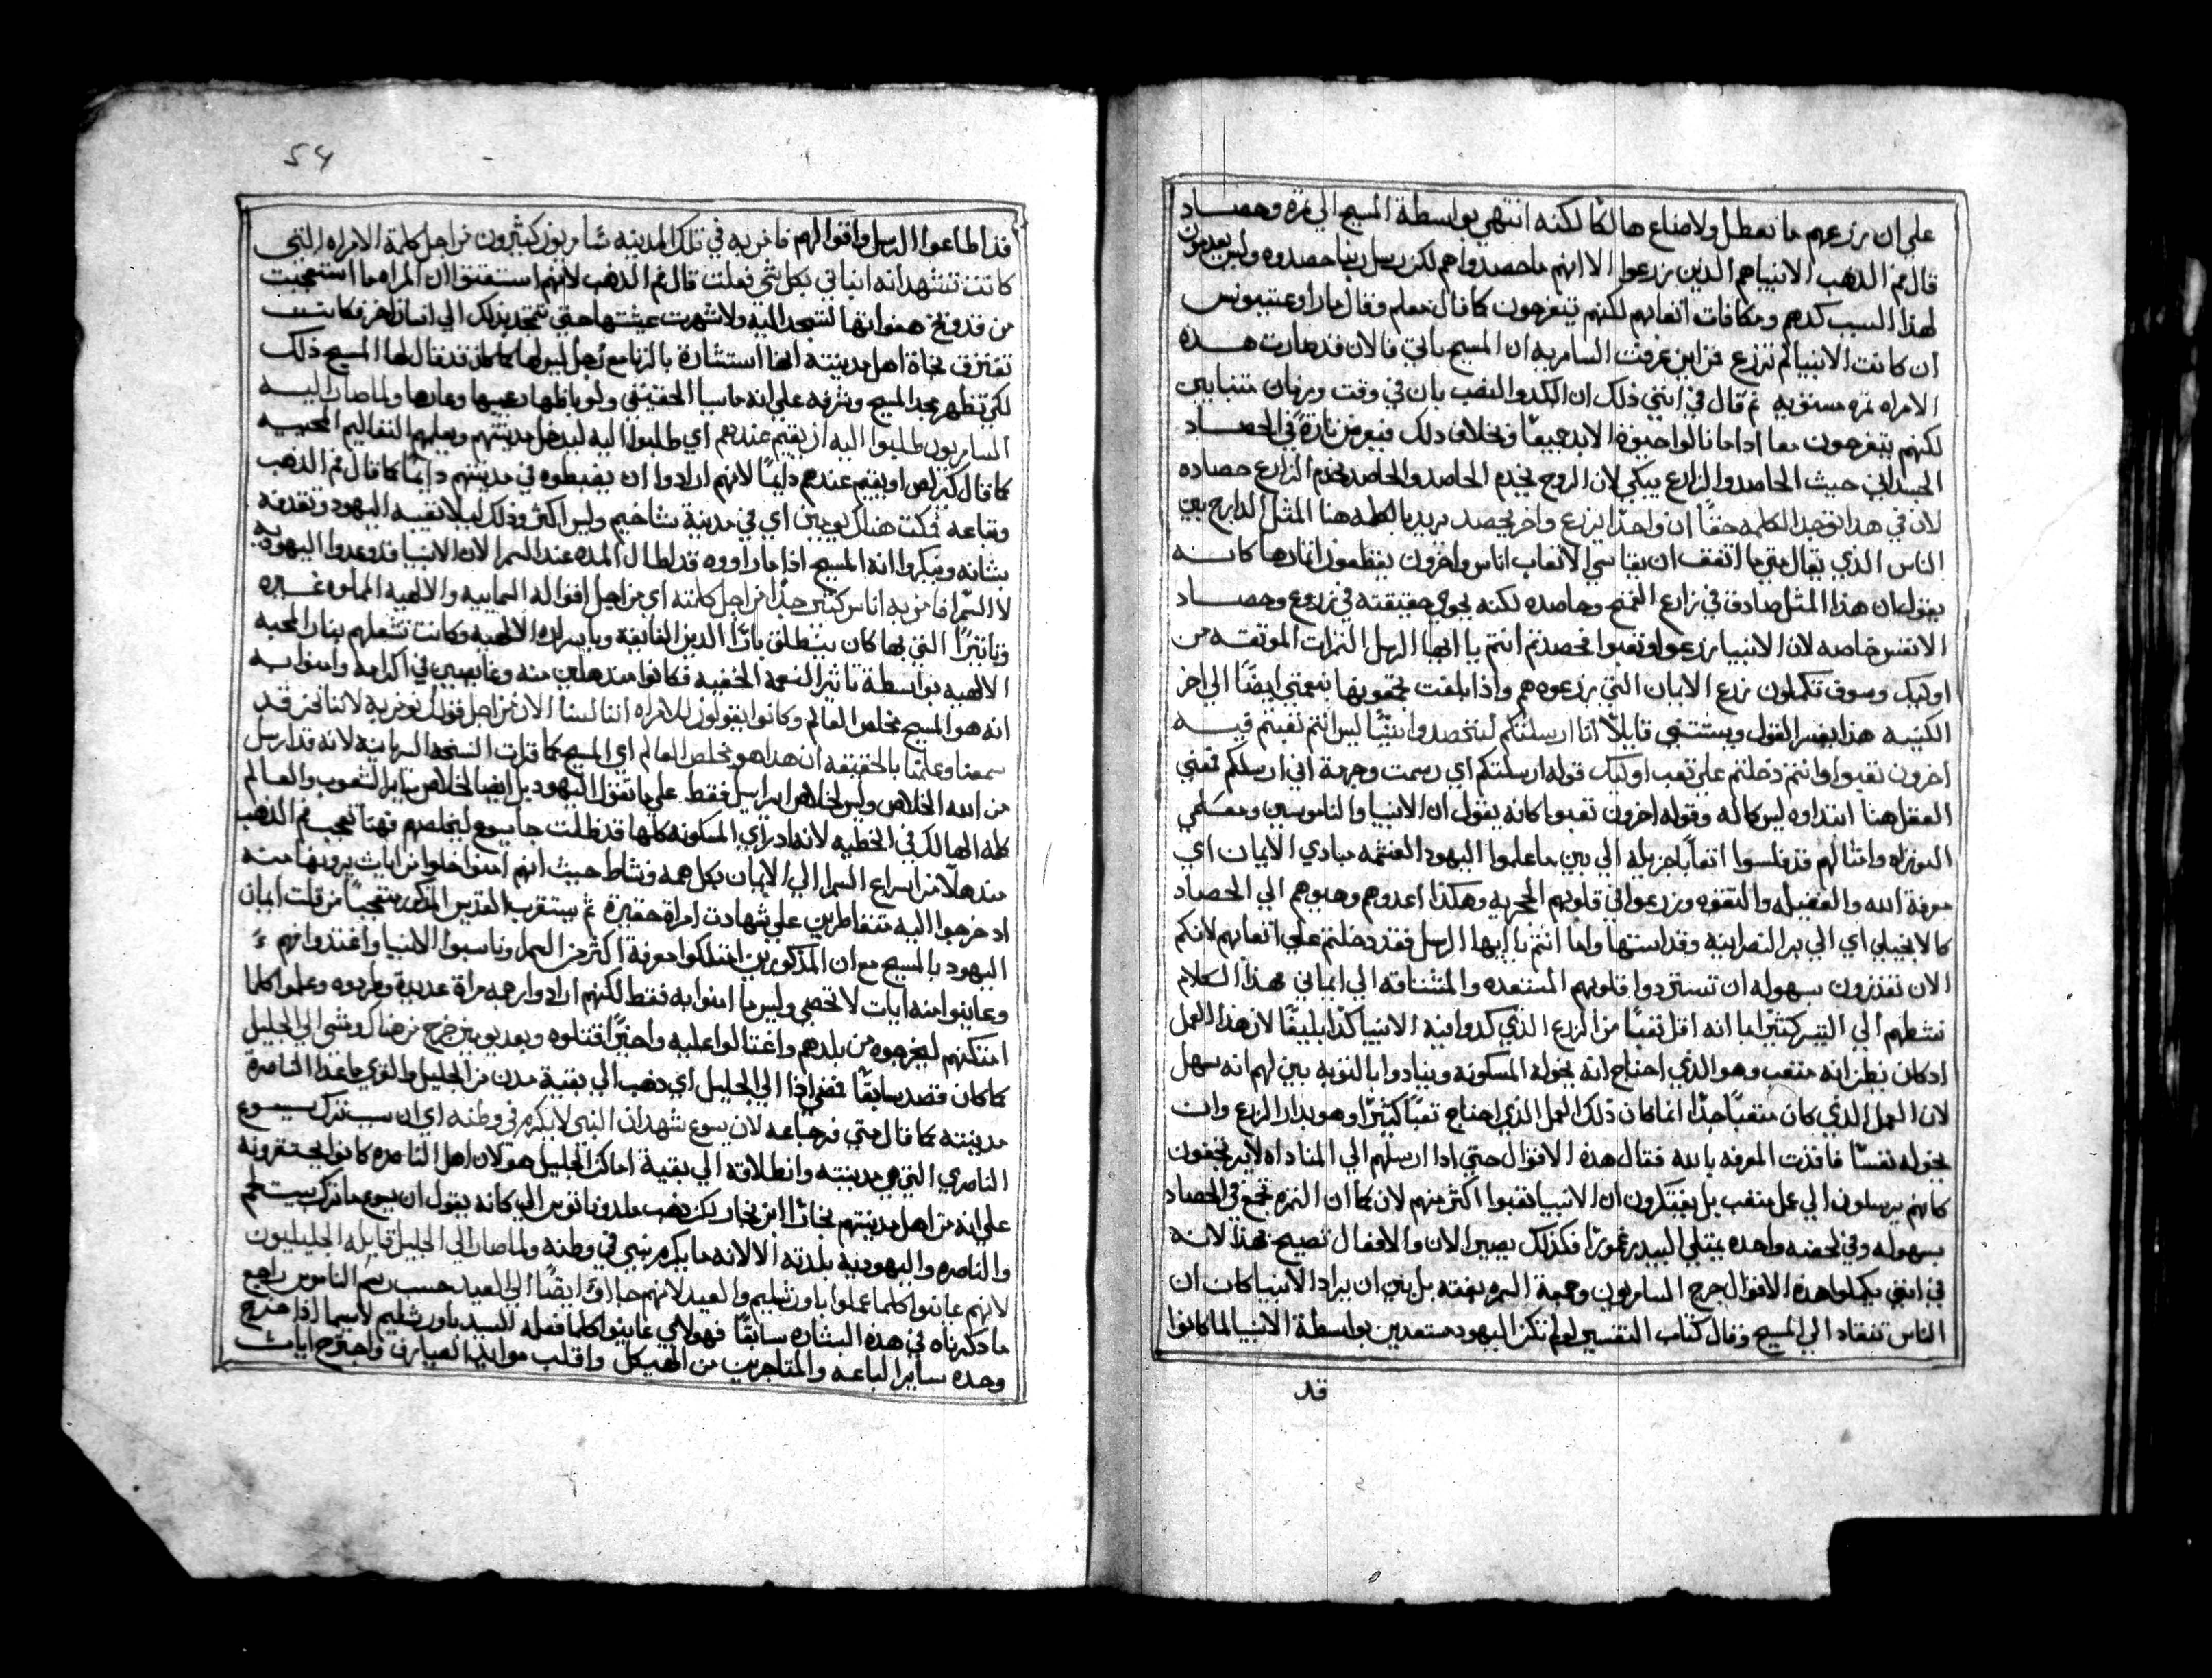 علي ان زرعهم ما تعطل ولا ضاع هالكا لكنه انتهي بواسطة المسيح الي ثمرة وحصاد
قال فم الذهب الانبيا هم الذين زرعوا الا انهم ما حصدوا هم لكن رسل ربنا حصدوه وليس يعدمون
لهذا السبب كدهم ومكافات اتعابهم لكنهم يتفرحون كما قال معلم وقال مار اوغستينوس
ان كانت الانبيا لم تزرع فمن اين عرفت السامريه ان المسيح ياتي فالان قد صارت هذه
الامراه ثمره مستويه ثم قال في اثني ذلك ان الكد والنصب بان في وقت وزمان متباين
لكنهم يتفرحون معا اذا ما نالوا حيوة الابد جميعا وبخلاف ذلك فيعرض تارة في الحصاد
الجسداني حيث الحاصد والزارع يبكي لان الزوج يخدم الحاصد والحاصد يخدم الزارع حصاده
لان في هذا توجد الكلمه حقا ان واحدا يزرع واخر يحصد يريد بالكلمه هنا المثل الدارج بين
الناس الذي يقال متي ما اتفق ان يقاسي الاتعاب اناس واخرون يقطفون اثمارها كانه
يقول ان هذا المثل صادق في زارع القمح وحاصده لكنه يحوي حقيقته في زروع وحصاد
الانفس خاصه لان الانبيا زرعوا وتعبوا فحصدتم انتم يا ايها الرسل الثمرات الموثقه من
اوليك وسوف تكملون زرع الايمان التي زرعوه هم واذا بلغت يحقونها بنعمتي ايضا الي اخر
الكنيسه هذا يفسر القول ويستثني قايلا انا ارسلتكم لتحصدوا شيا ليس انتم تعبتم فيه
اخرون تعبوا وانتم دخلتم علي تعب اوليك قوله ارسلتكم اي رسمت وجزمة اني ارسلكم فمعني
الفعل هنا ابتداوه ليس كماله وقوله اخرون تعبوا كانه يقول ان الانبيا والناموسين ومعلمي
التوراه وامثالهم قد قاسوا اتعابا جزيله الي بين ما علموا اليهود الغشمه مبادي الايمان اي
معرفة الله والفضيله والتقوه وزرعوا في قلوبهم الحجريه وهكذا اعدوهم وهيوهم الي الحصاد
كالانجيلي اي الي بر النصرانيه وقداستها واما انتم يا ايها الرسل فقد دخلتم علي اتعابهم لانكم
الان تقدرون بسهوله ان تستردوا قلوبهم المستعده والمشتاقه الي ايماني فهذا الكلام
نشطهم الي التبشير كثيرا بما انه اقل تعبا من الزرع الذي كدوا فيه الانبيا كدا بليغا لان هذا العمل
اذ كان يظن انه متعب وهو الذي احتاج انه يخوله المسكونه وينادوا بالتوبه بين لهم انه سهل
لان العمل الذي كان متعبا جدا انما كان ذلك العمل الذي احتاج تعبا كثيرا وهو بدار الزرع وان
يخوله نفسا فاقدت المعرفه بالله فقال هذه الاقوال حتي اذا ارسلهم الي المناداه لا يرتجفون
كانهم يرسلون الي عمل متعب بل يفتكرون ان الانبيا تعبوا اكثر منهم لان كما ان الثمره تجمع في الحصاد
بسهوله وفي لحضه واحده يمتلي البيدر غمورا فكذلك يصير الان والاقفال تصيح فهذا لانه
في اثني يكملوا هذه الاقوال خرج السامريون وجمعة الثمره بغته بل بين ان يراد الانبيا كان ان
الناس تنقاد الي المسيح وقال كتاب التفسير لو لم تكن اليهود مستعدين بواسطة الانبيا لما كانوا
قد
54
قد اطاعوا الرسل واقوالهم فامن به في تلك المدينه سامريون كثيرون من اجل كلمة الامراه التي
كانت تشهد انه انباني بكل شي فعلت قال فم الذهب لانهم استفتوا ان المراه ما استعجبت
من قد وبخ هفواتها لتسجد اليه ولا شهرت عيشتها حتي تتجد بذلك الي انسان اخر فكانت
تعترف نجاة اهل مدينته انها استشارة بالزنا مع رجل ليس لها كما كان قد قال لها المسيح ذلك
لكي تظهر مجد المسيح وشرفه علي انه ماسيا الحقيقي ولو باظهار عيبها وعارها ولما صار اليه
السامريون طلبوا اليه ان يقيم عندهم اي طلبوا اليه ليدخل مدينتهم ويعلمهم التعاليم المحييه
كما قال كيرلص او يقيم عندهم دايما لانهم ارادوا ان يضبطوه في مدينتهم دايما كما قال فم الذهب
وبقاعه فمكث هناك يومين اي في مدينة شاخيم وليس اكثر وذلك ليلا تغيبه اليهود وتقدفه
بشانه وينكروا انه المسيح اذا ما راووه قد اطال المده عند السمرا لان الانبيا قد وعدوا اليهود به
لا السمرا فامن به اناس كثير جدا من اجل كلمته اي من اجل اقواله السماييه والالهيه المملوه غيره
وتاثيرا التي بها كان ينطلق بارا الدين الفايقة وبايسراره الالهيه وكانت تشعلهم بنار المحبه
الالهيه بواسطة تاثير النعمة الخفيه فكانوا مندهلين منه وغايصين في اكرامه وامنوا به
انه هو المسيح مخلص العالم وكانوا يقولون للامراه اننا لسنا الان من اجل قولك نومن به لاننا نحن قد
سمعنا وعلمنا بالحقيقه ان هذا هو مخلص العالم اي المسيح كما قرات النسخه السريانيه لانه قد ارسل
من الله الخلاص وليس لخلاص اسرايل فقط علي ما تقول اليهود بل ايضا لخلاص ساير الشعوب والعالم
كله الهالك في الخطيه لانه ادراي المسكونه كلها قد ظلت جا يسوع ليخلصهم فهنا تعجب فم الذهب
مندهلا من اسراع السمرا الي الايمان بكل همه ونشاط حيث انهم امنوا خلوا من ايات يرونها منه
اد خرجوا اليه متقاطرين علي شهادت امراة حقيره ثم يستقرب القديس المذكور متعجبا من قلت ايمان
اليهود بالمسيح مع ان المذكورين امتلكوا معرفه اكثر من السمرا وناسبوا الانبيا واغتذوا بهم
وعاينوا منه ايات لا تحصي وليس ما امنوا به فقط لكنهم ارادوا رجمه مراة عديدة وطردوه وعملوا كلما
امتكنهم ليخرجوه من بلدهم واغتالوا عليه واخيرا قتلوه وبعد يومين خرج من هناك ومشي الي الجليل
كما كان قصد سابقا فمضي اذا الي الجليل اي ذهب الي بقية مدن من الجليل والقري ما عدا الناصرة
مدينته كما قال متي فرضاعه لان يسوع شهد ان النبي لا يكرم في وطنه اي ان سبب ترك يسوع
الناصري التي هي مدينته وانطلاقه الي بقية اماكن الجليل هو لان اهل الناصره كانوا يحتقرونه
علي انه من اهل مدينتهم نجارا ابن نجار لكن ذهب ملدوناتوس الي كانه يقول ان يسوع ما ترك بيت لحم
والناصره واليهوديه بلدته الا لانه ما يكرم نبي في وطنه ولما صار الي الجليل قابله الجليليون
لانهم عاينوا كلما عمله باورشليم والعيد لانهم جاووا ايضا الي العيد حسب رسم الناموس راجع
ما ذكرناه في هذه البشاره سابقا فهولاي عاينوا كلما فعله السيد باورشليم لاسيما اذا خرج
وحده ساير الباعه والمتاجرين من الهيكل واقلب موايد الصيارف واجترح ايات